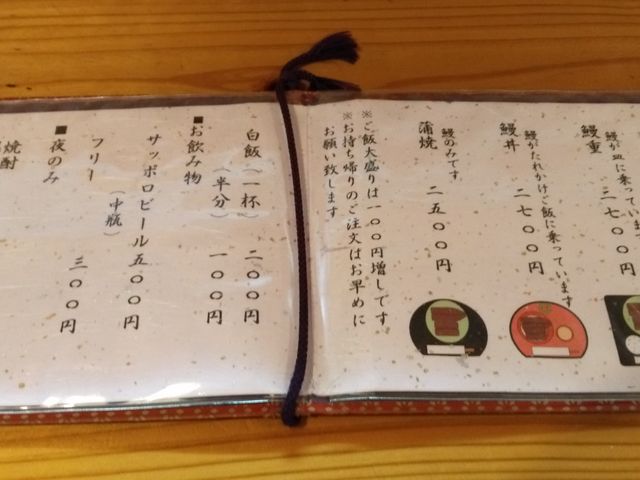 鰻重
鰻が皿に乗っています
鰻丼
鰻がたれかけご飯に乗っています
二七〇〇円
蒲焼
鰻のみです
二五〇〇円
※ご飯大盛りは一〇〇円増しです
※お持ち帰りのご注文はお早めに
お願い致します
白飯(一杯) 二〇〇円
(半分) 一〇〇円
■お飲み物
サッポロビール 五〇〇円
(中瓶)
フリー 三〇〇円
■夜のみ
焼酎